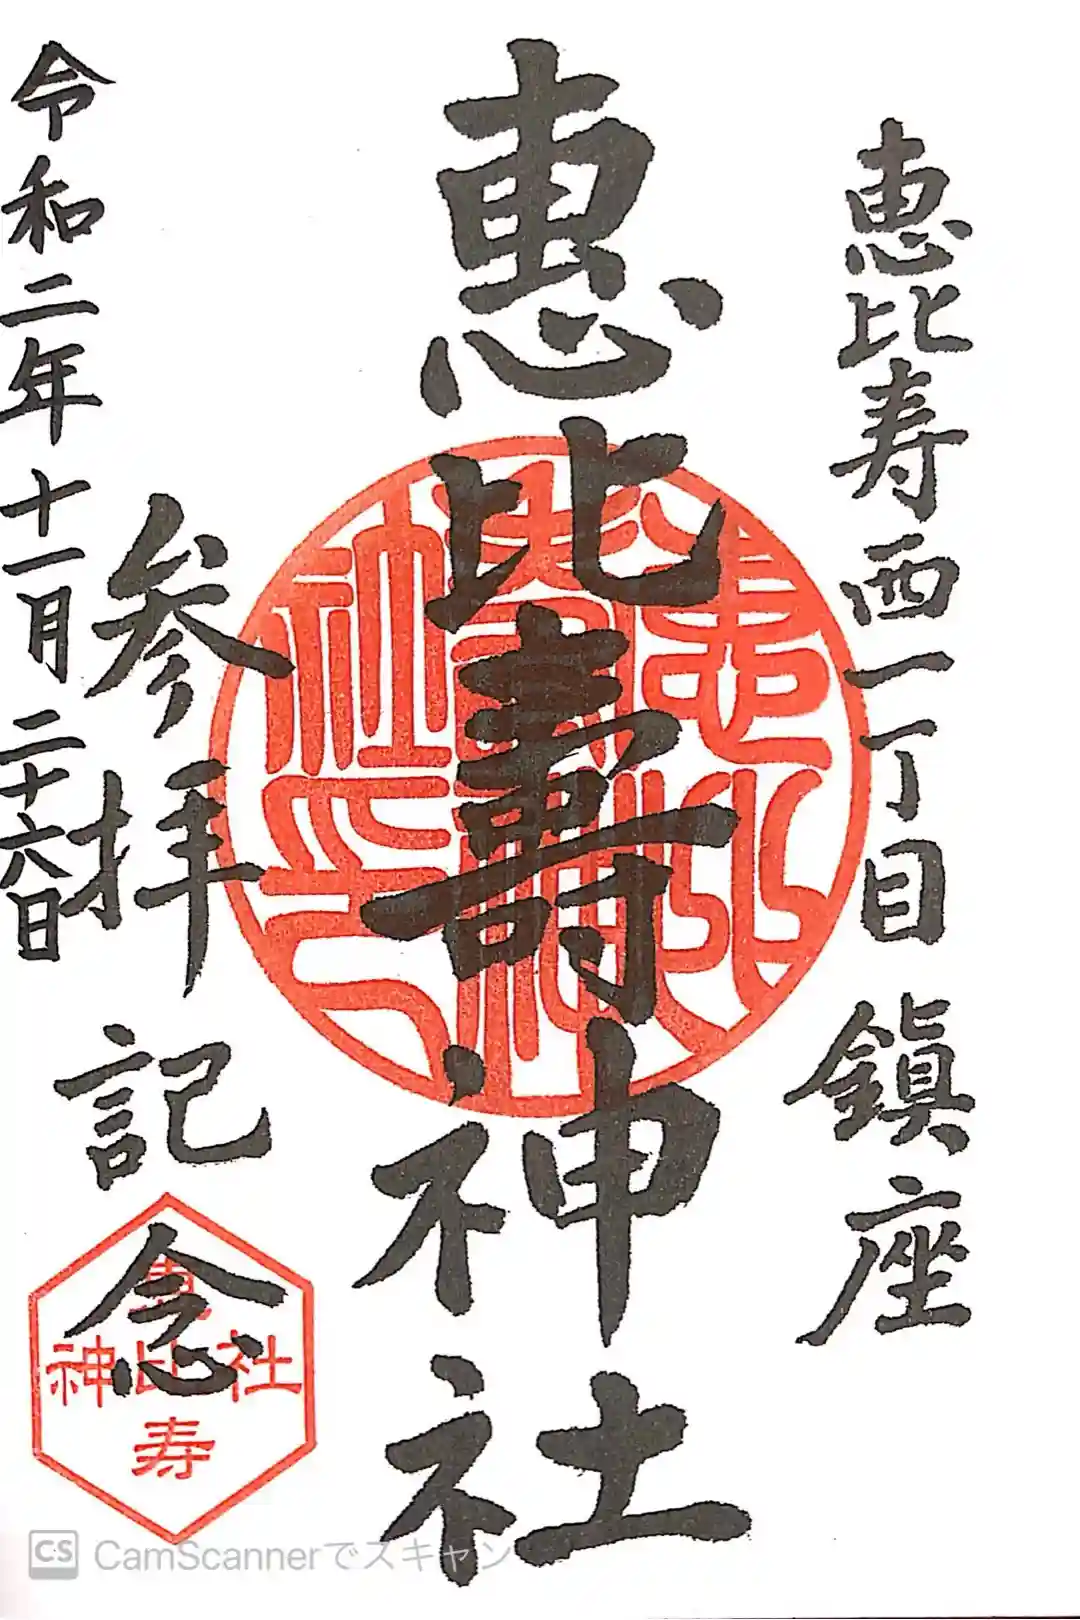 恵比寿西一丁目 鎮座
恵比壽神社
参拝記念
令和二年十一月二十六日
恵比寿
神社
CS CamScannerでスキャン